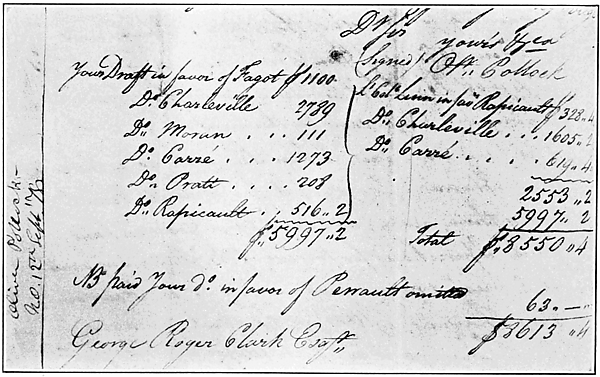 Drs
yours &ca
(Signed) Olr. Pollock
Your Draft in favor of Fagot $ 1100
Do. Charleville 2789
Do. Moran . . 111
Do. Carré . . . 1273
Do. Pratt . . . . 208
Do. Rapicault . . 516 " 2
$ 5997 " 2
Lt. Col. Linn in fav Rapicault $ 328 " 4
Do. Charleville . . . 1605 " 2
Do. Carré . . . . 619 " 4
2553 " 2
5997 " 2
Total $ 8550 " 4
NB paid Your do. in favor of Perrault omitted
63 " —
$ 8613 " 4
George Roger Clark Esqr.
Oliver Pollock —
N.O. 12th Sept.